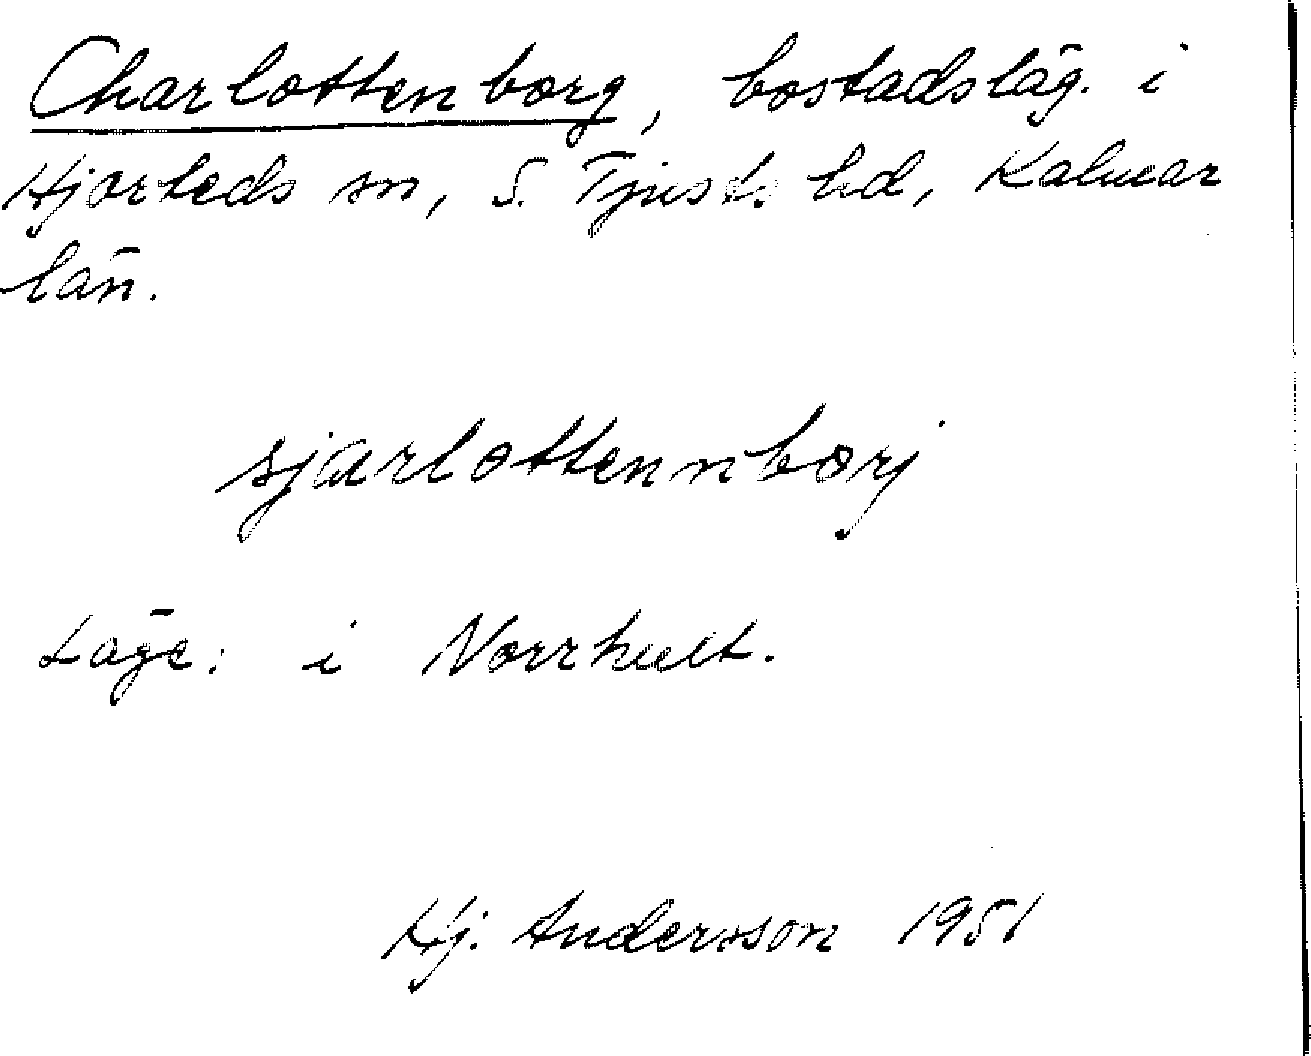 Charlottenborg, bostadsläg. i
Hjorteds sn, S. Tjusts hd, Kalmar
län.
sjarlottennborj
Läge: i Norrhult.
Hj. Andersson 1951